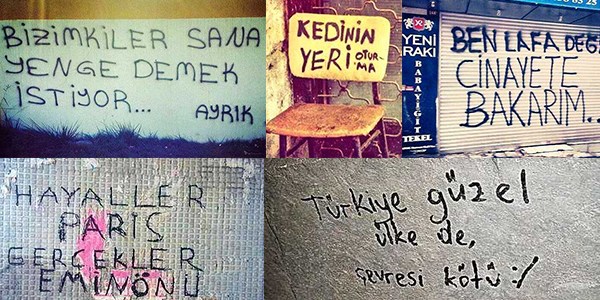 BİZİMKİLER SANA
YENGE DEMEK
İSTİYOR...
AYRIK
KEDİNİN
YERİ OTUR-
MA
YENİ
RAKI
BABAYİĞİT
TEKEL
BEN LAFA DEĞİ
CİNAYETE
BAKARIM...
HAYALLER
PARİS
GERÇEKLER
EMİNÖNÜ
Türkiye güzel
ülke de,
çevresi kötü :/